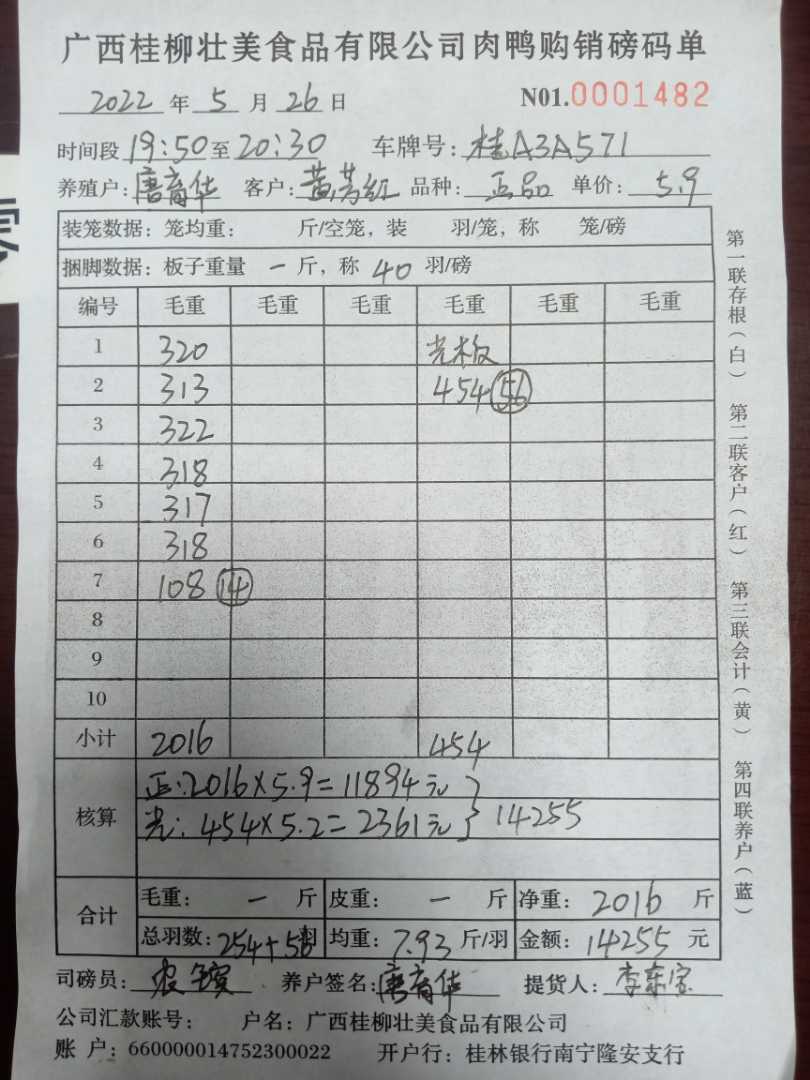 广西桂柳壮美食品有限公司肉鸭购销磅码单
2022 年 5 月 26 日 N01.0001482
时间段 19:50 至 20:30 车牌号: 桂A3A571
养殖户: 唐育华 客户: 黄芳红 品种: 正品 单价: 5.9
装笼数据: 笼均重: 斤/空笼, 装 羽/笼, 称 笼/磅
捆脚数据: 板子重量 一 斤, 称 40 羽/磅
编号 毛重 毛重 毛重 毛重 毛重 毛重
1 320 光板
2 313 454 56
3 322
4 318
5 317
6 318
7 108 14
8
9
10
小计 2016 454
核算
正:2016×5.9=11894元
光:454×5.2=2361元 } 14255
合计
毛重: 一 斤 皮重: 一 斤 净重: 2016 斤
总羽数: 254+56 羽 均重: 7.93 斤/羽 金额: 14255 元
司磅员: 养户签名: 唐育华 提货人: 李东宝
公司汇款账号: 户名: 广西桂柳壮美食品有限公司
账 户: 660000014752300022 开户行: 桂林银行南宁隆安支行
第一联存根(白) 第二联客户(红) 第三联会计(黄) 第四联养户(蓝)